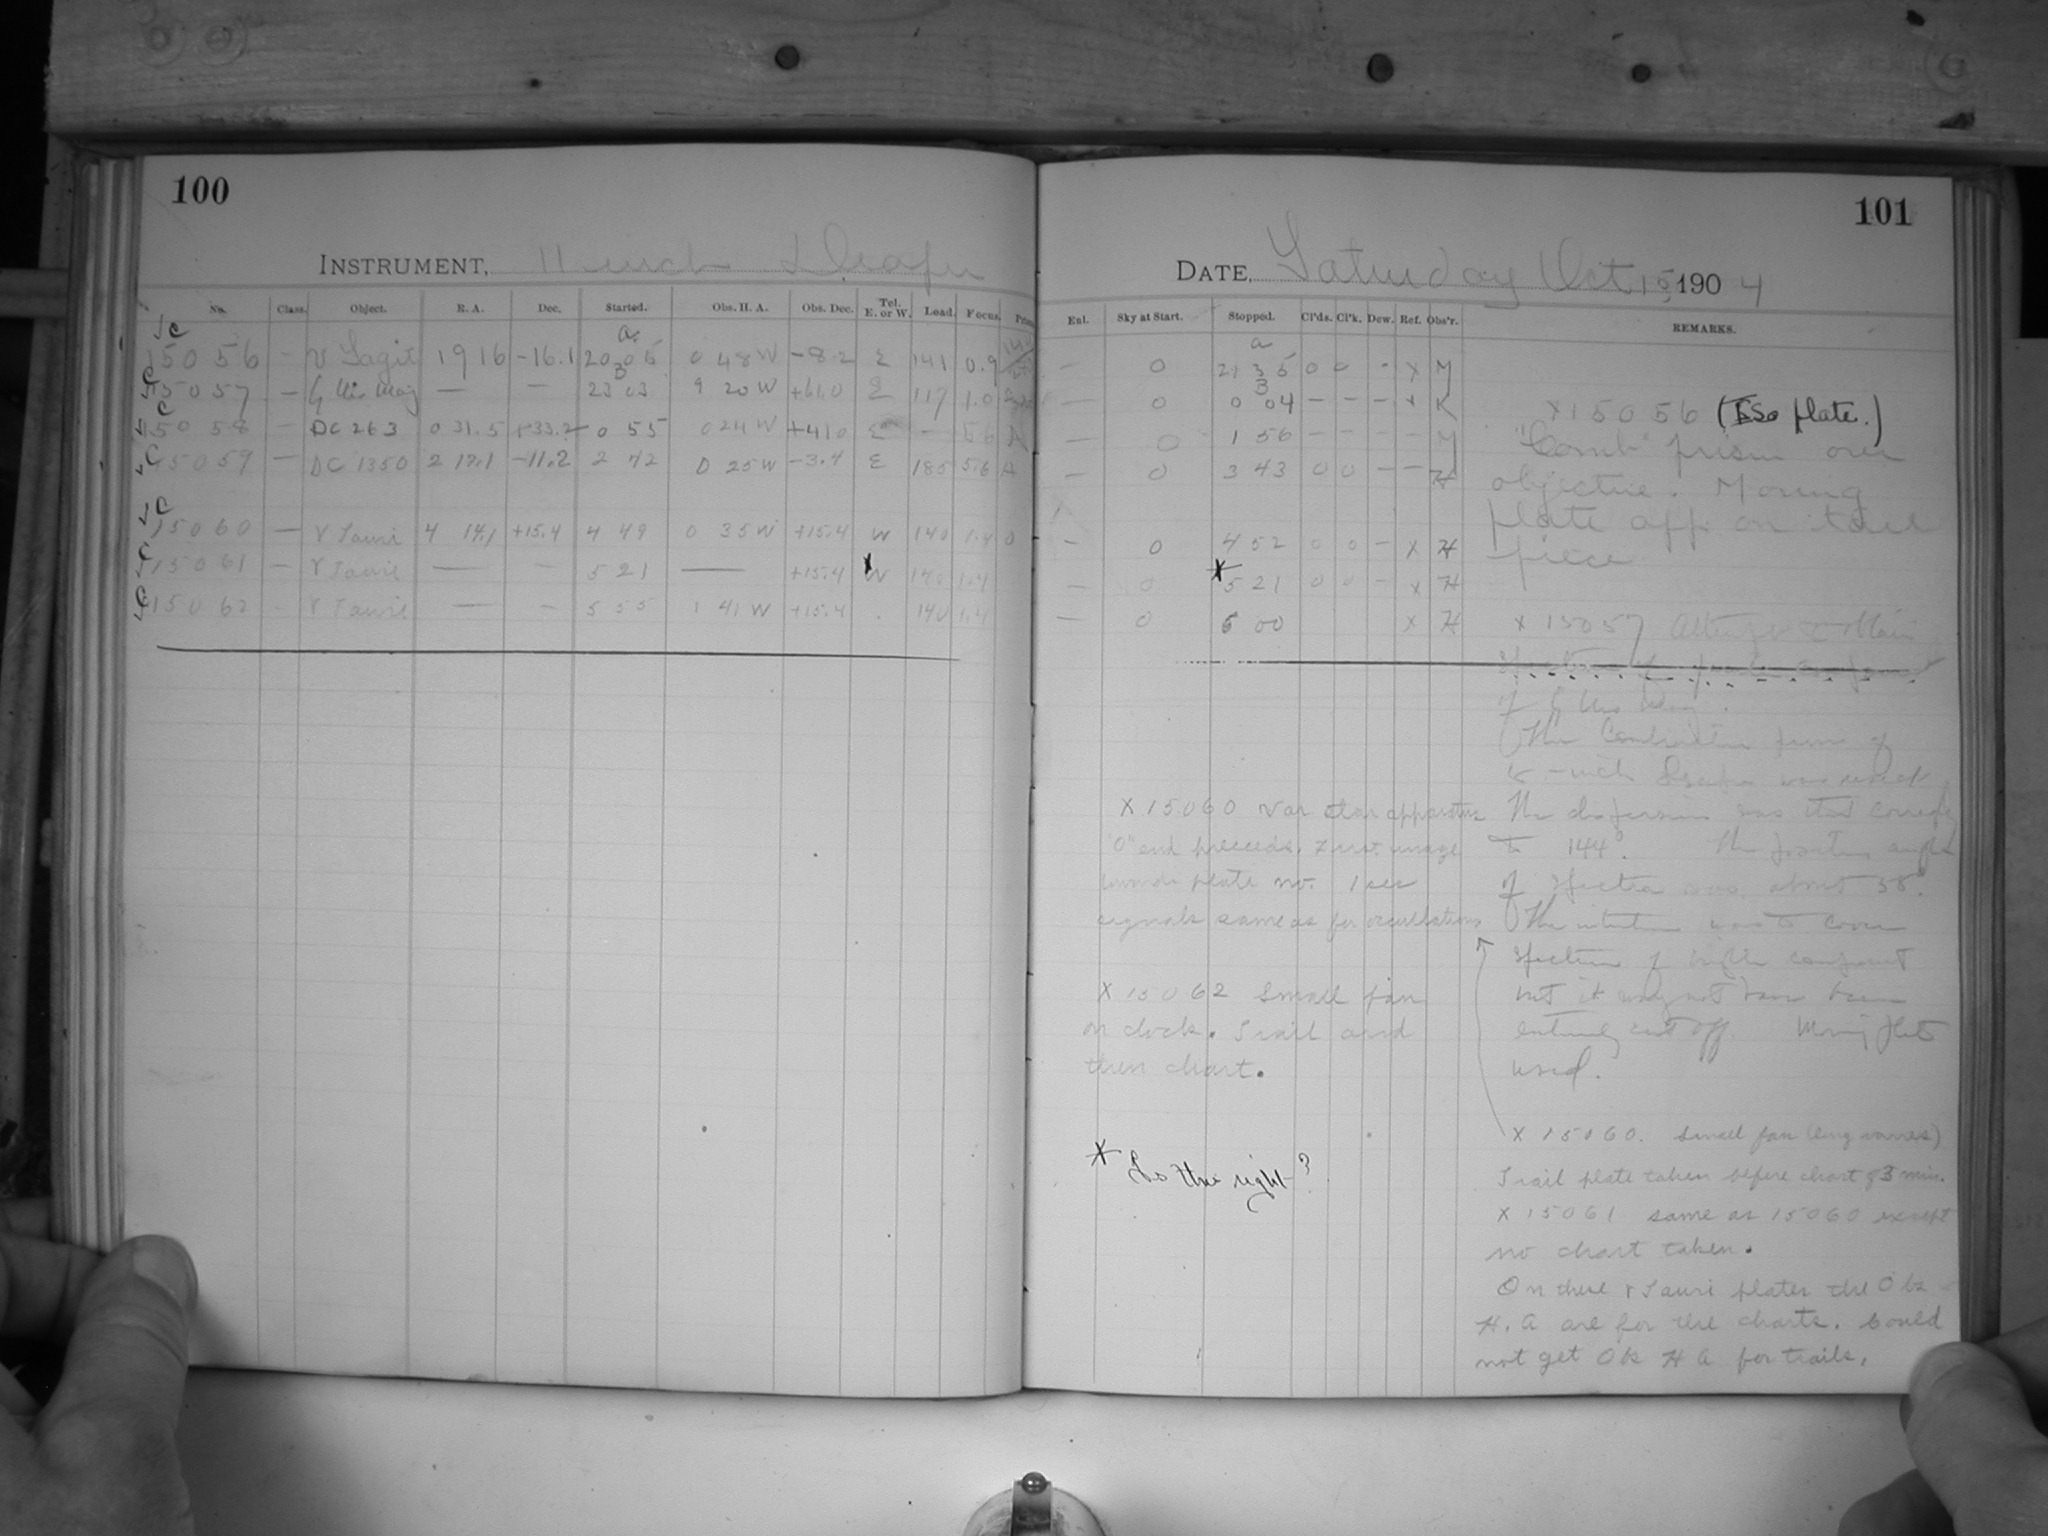 100
INSTRUMENT, 11 inch Draper
No. Class. Object. R. A. Dec. Started. Obs. H. A. Obs. Dec. Tel. E. or W. Load. Focus. Prism
a
15056 — v Sagit 19 16 -16.1 20 35 0 48 W -8.2 E 141 0.9
15057 — — — 23 03 9 20 W +61.0 E 117 1.0
15058 — DC 263 0 31.5 +33.2 0 55 0 24 W +41.0 E — 5.6 A
15059 — DC 1350 2 12.1 -11.2 2 42 0 25 W -3.4 E 185 5.6 A
15060 — v Tauri 4 14.1 +15.4 4 49 0 35 W +15.4 W 140 1.4 0
15061 — v Tauri — — 5 21 — +15.4 W 140 1.4
15062 — v Tauri — — 5 55 1 41 W +15.4 140 1.4
101
DATE, Saturday Oct 15, 1904
Enl. Sky at Start. Stopped. Cl'ds. Cl'k. Dew. Ref. Obs'r. REMARKS.
a
— 0 21 35 0 0 - x M
— 0 0 04 — — — x K
— 0 1 56 — — — — M
— 0 3 43 0 0 — — H
— 0 4 52 0 0 — x H
— 0 * 5 21 0 0 - x H
— 0 6 00 x H
x 15056 (Iso plate.)
"Comb" prism over
objective. Moving
plate app. on tail
piece
x 15057
of ζ Urs Maj.
The
was used
The dispersion was that
to 144°. The position angle
of spectra was about 58°.
The intention was to cover
spectrum of bright component
but it may not have been
entirely cut off. Moving plate
used.
x 15060. Small fan (long vanes)
Trail plate taken before chart of 3 min.
x 15061 same as 15060 except
no chart taken.
On these v Tauri plates the Obs
H.A are for the charts. Could
not get Obs H A for trails.
x 15060 Var star apparatus
"0" end preceeds. First image
towards plate no. 1 sec
signals same as for occultations
x 15062 Small fan
on clock. Trail and
then chart.
* Is this right?